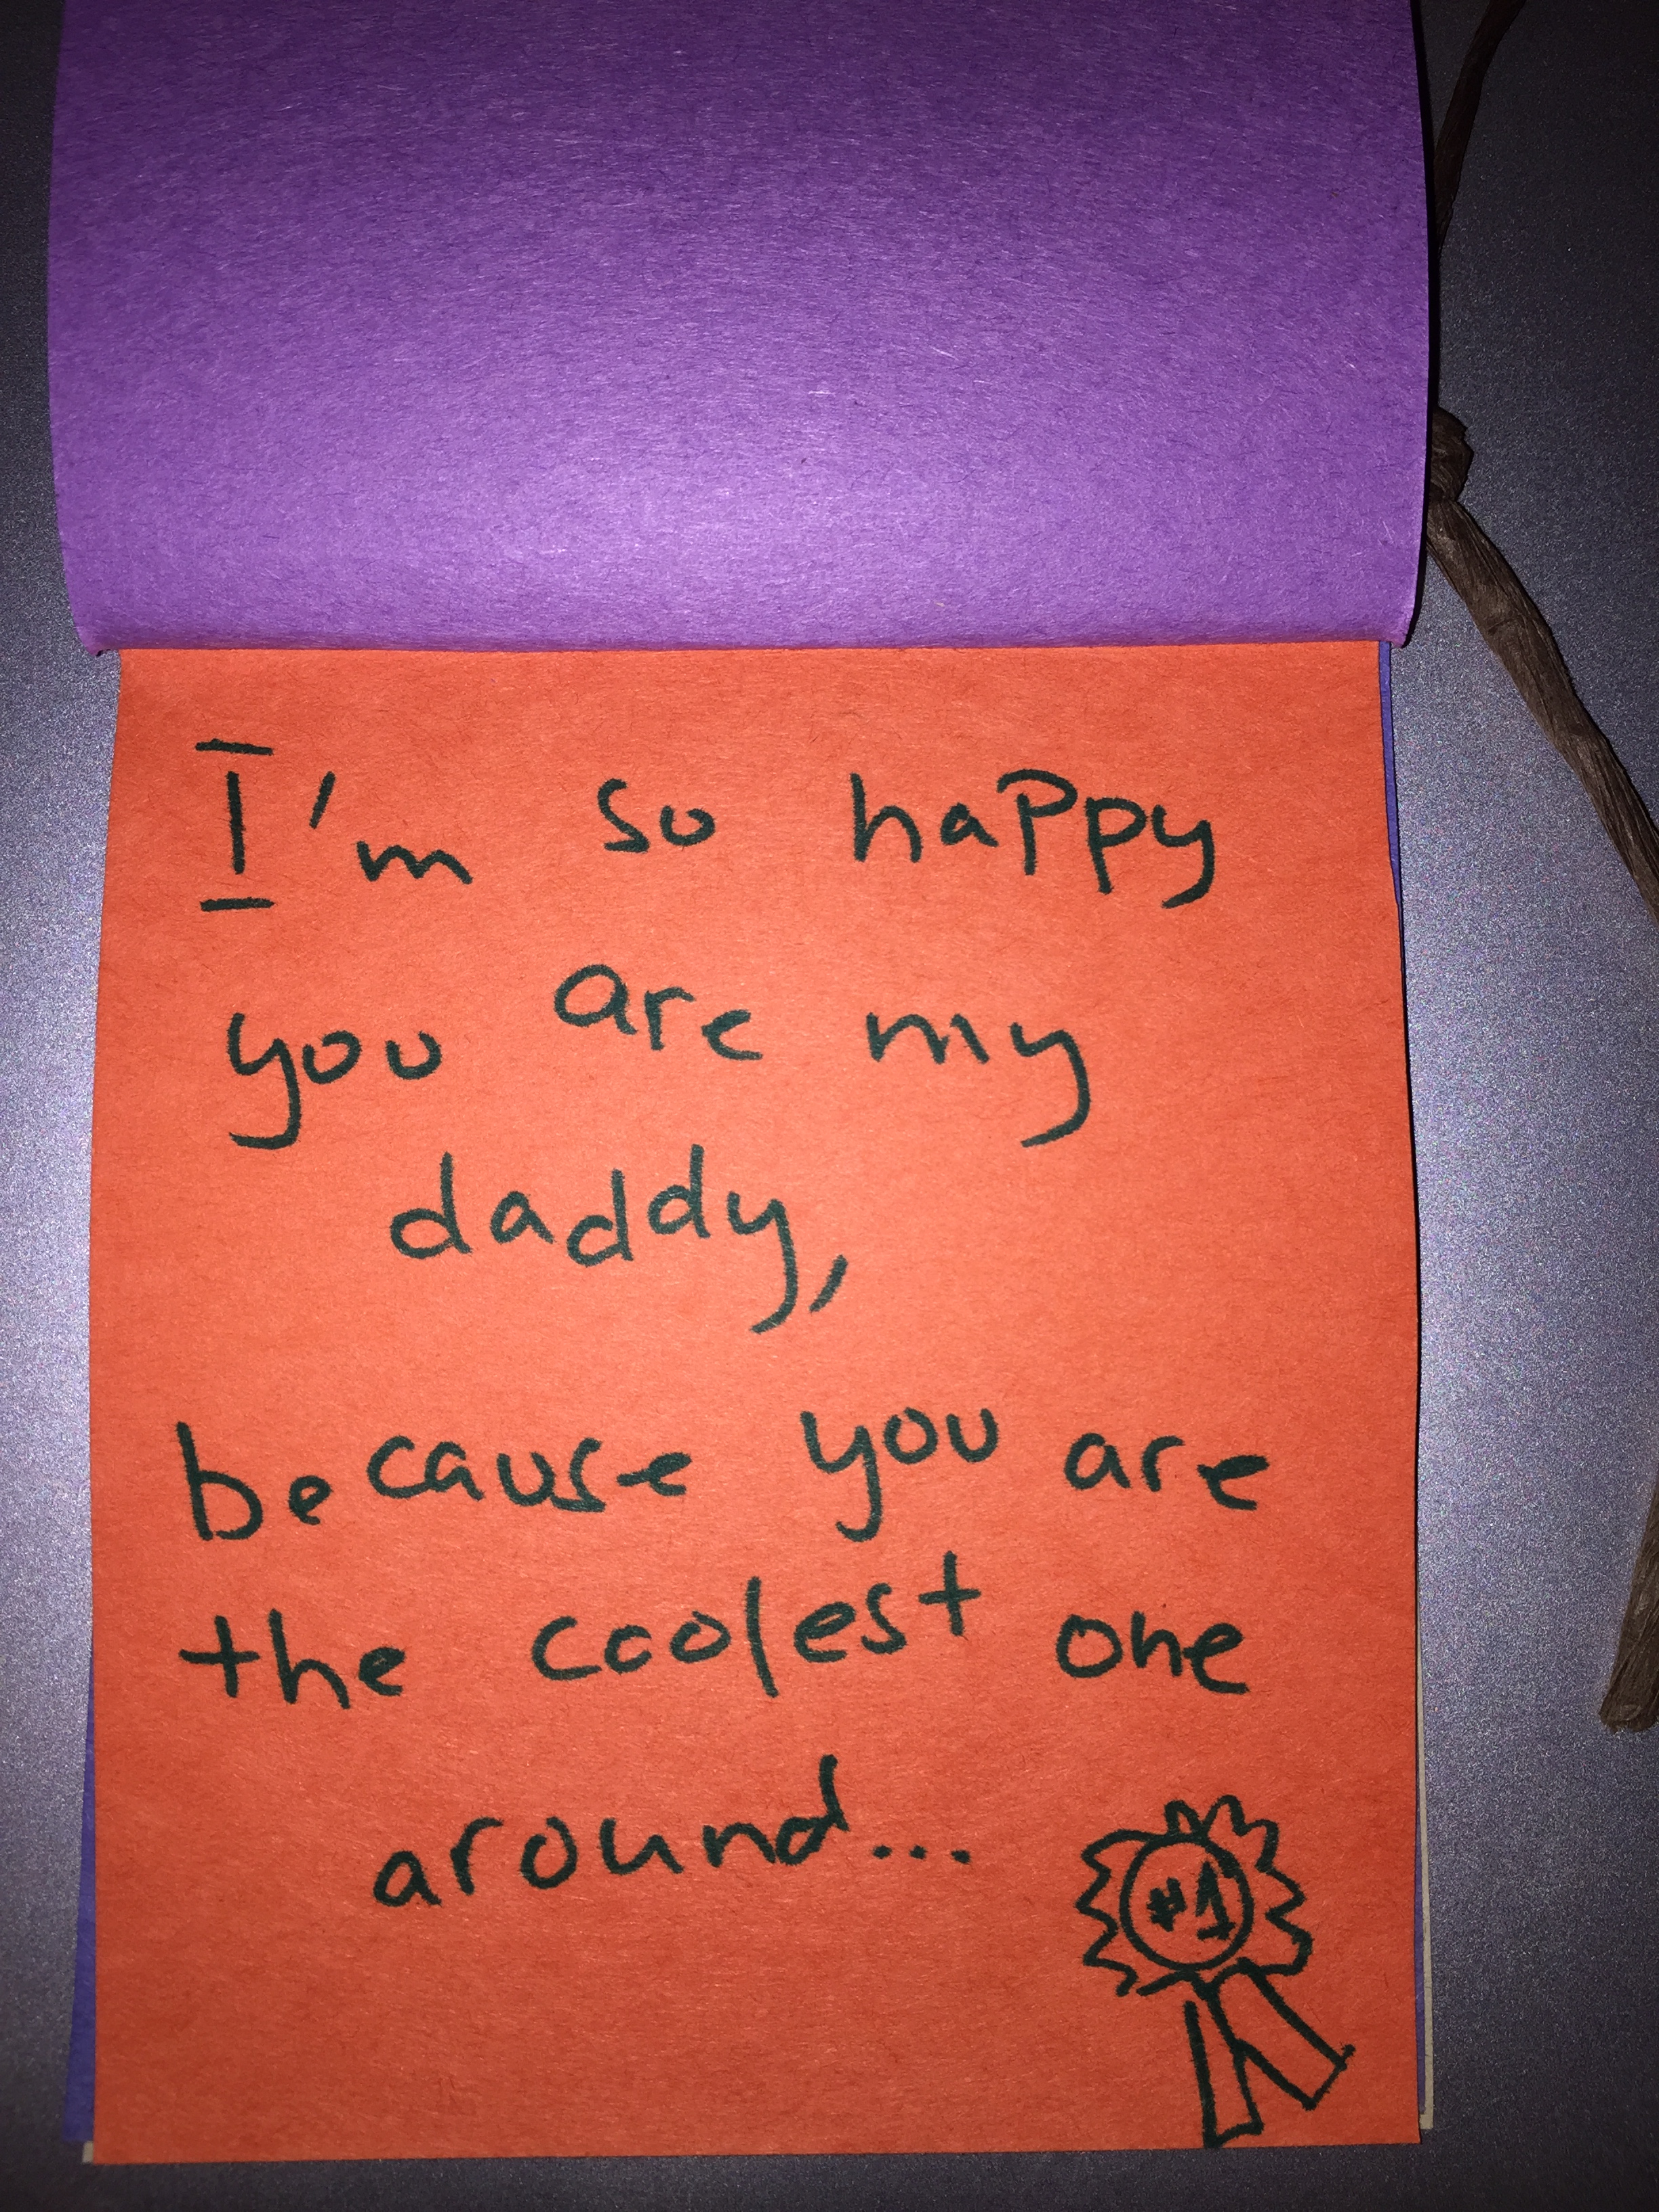 I'm so happy
you are my
daddy,
because you are
the coolest one
around...
#1